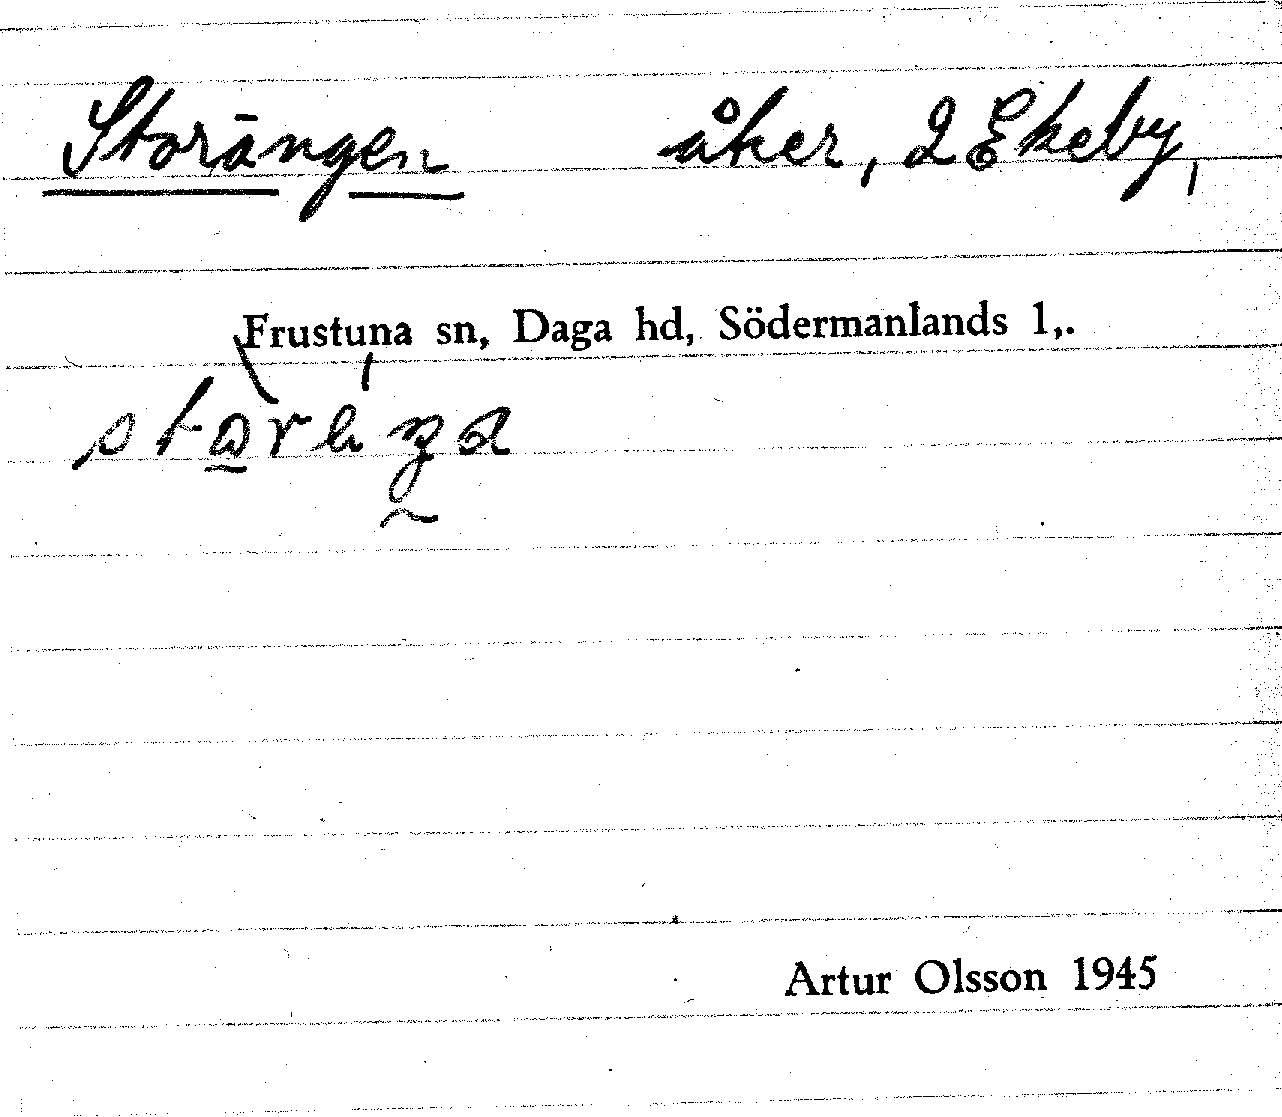 Storängen åker, 2 Ekeby,
Frustuna sn, Daga hd, Södermanlands l,.
Artur Olsson 1945